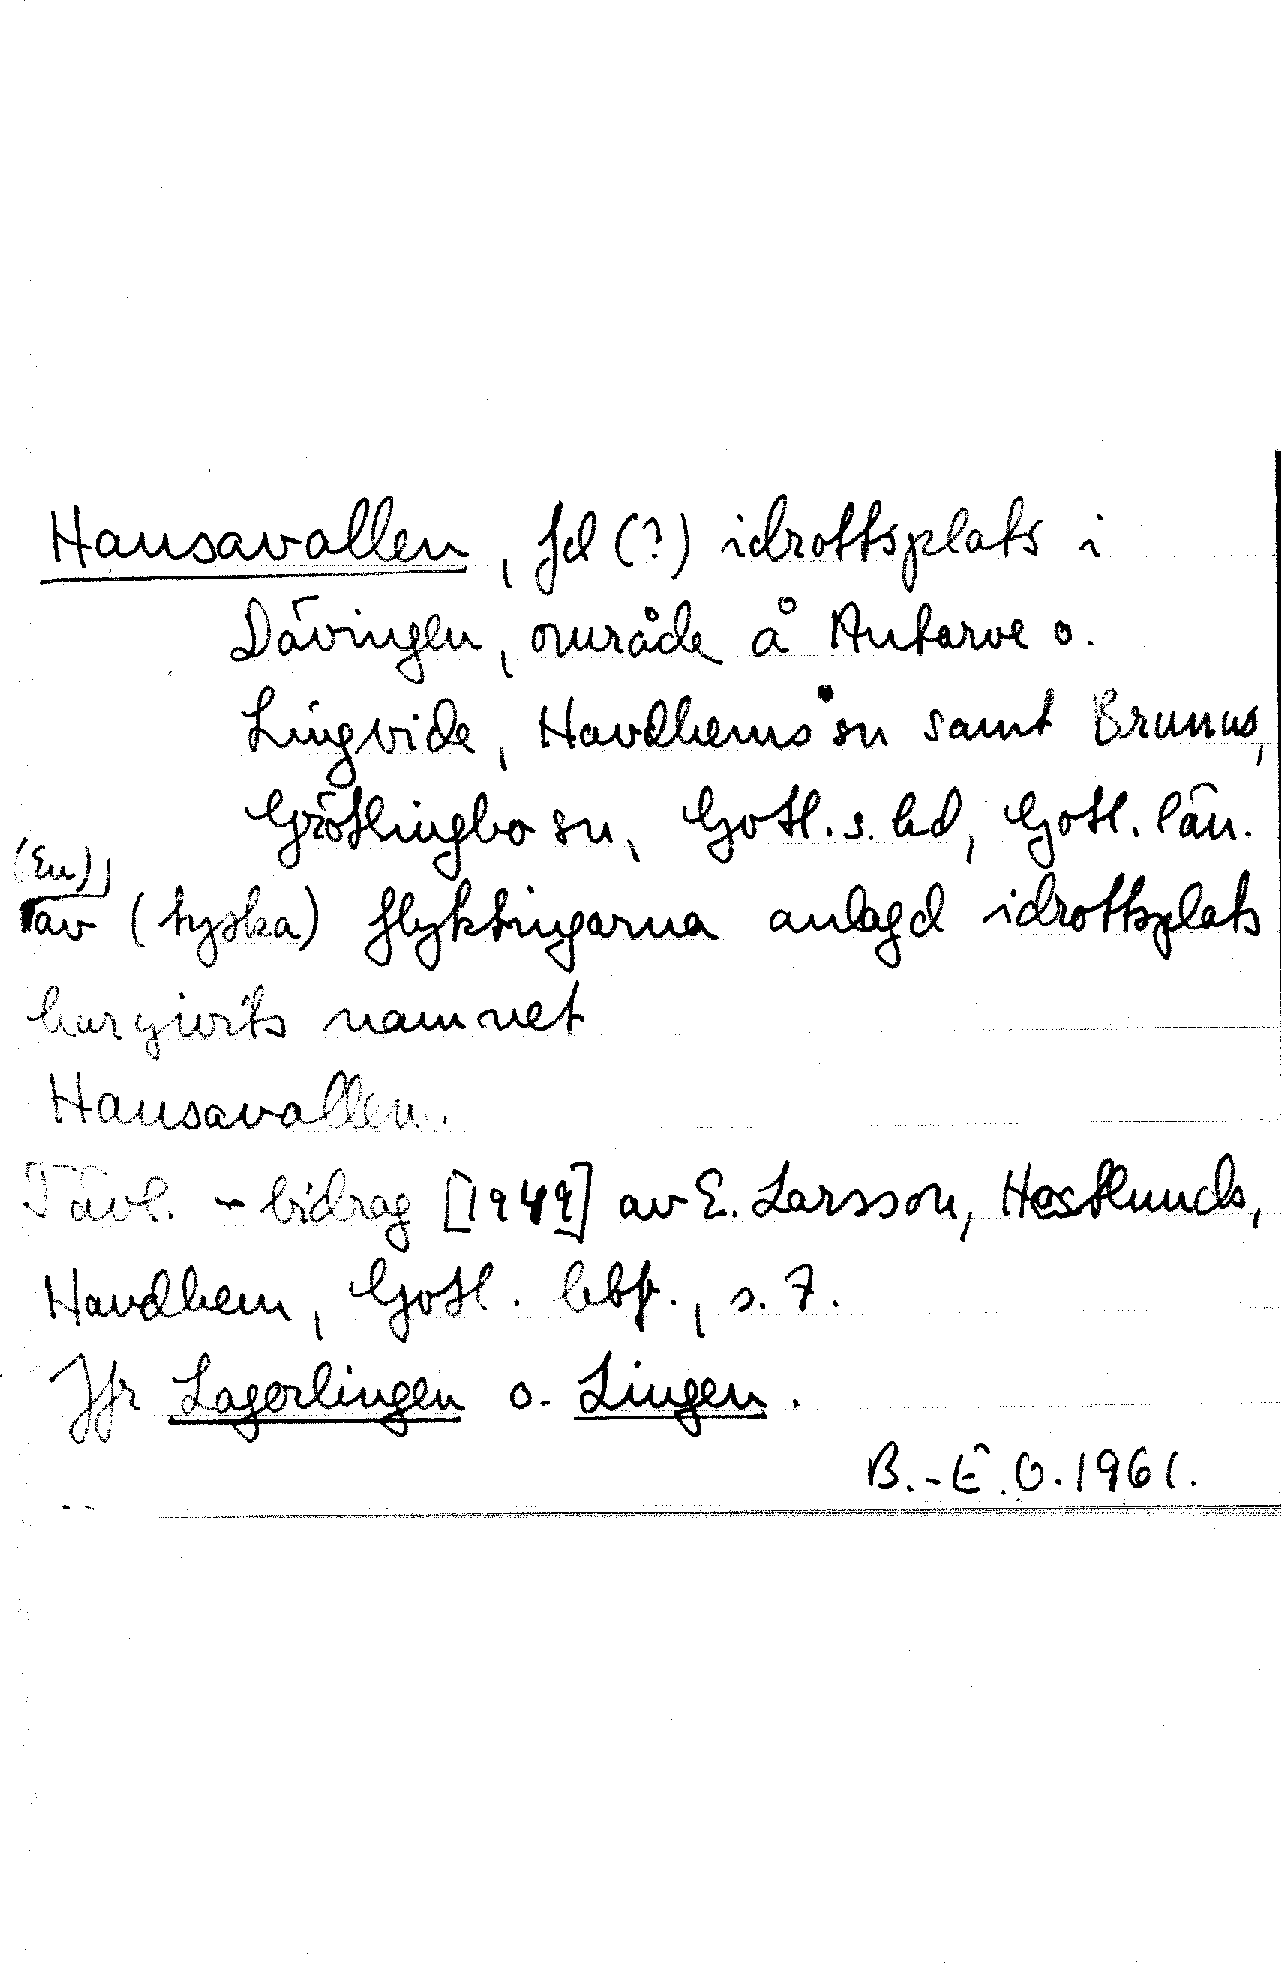 Hansavallen, fd (?) idrottsplats i
Dävingen, område å Autarve o.
Lingvide, Havdhems sn samt Brunns,
Grötlingbo sn, Gotl. s. hd, Gotl. län.
(En)
av (tyska) flyktingarna anlagd idrottsplats
har givits namnet
Hansavallen.
Tävl. - bidrag [1949] av E. Larsson, Hastlunds,
Havdhem, Gotl. hbf., s. 7.
Jfr Lagerlingen o. Lingen.
B.-E. O. 1961.